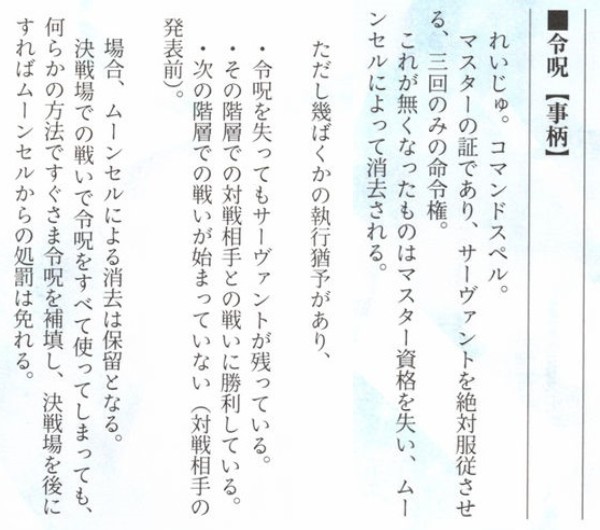 ■令呪【事柄】
れいじゅ。コマンドスペル。
マスターの証であり、サーヴァントを絶対服従させ
る、三回のみの命令権。
これが無くなったものはマスター資格を失い、ムー
ンセルによって消去される。
ただし幾ばくかの執行猶予があり、
・令呪を失ってもサーヴァントが残っている。
・その階層での対戦相手との戦いに勝利している。
・次の階層での戦いが始まっていない（対戦相手の
発表前）。
場合、ムーンセルによる消去は保留となる。
決戦場での戦いで令呪をすべて使ってしまっても、
何らかの方法ですぐさま令呪を補填し、決戦場を後に
すればムーンセルからの処罰は免れる。